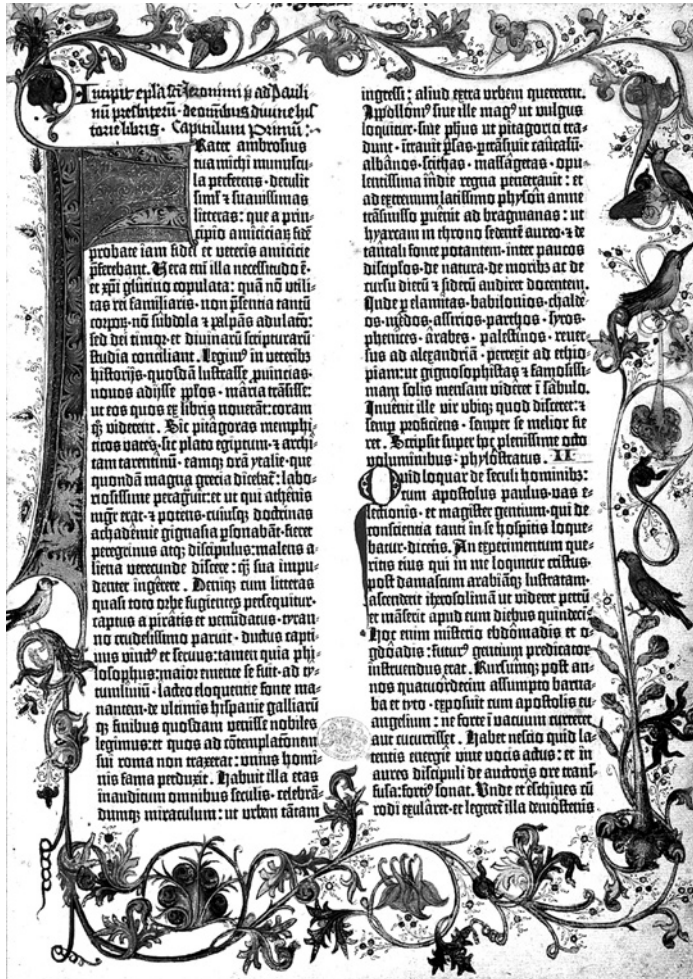 Incipit epl̄a sancti iheronimi ad pauli-
nū presbiterū de omnibus diuine his-
torie libris. Capitulum primū:
Frater ambrosius
tua michi munuscu-
la perferens · detulit
simł ⁊ suauissimas
litteras: que a prin-
cipio amiciciaꝝ fidē
probate iam fidei et veteris amicicie
p̄ferebant. Vera eni illa necessitudo ē·
et xp̄i glutino copulata: quam nō vtili-
tas rei familiaris· non p̄sentia tantū
corpoꝝ· nō subdola ⁊ palpās adulatio·
sed dei timor· et diuinarū scripturarū
studia conciliant. Legimꝰ in veteribꝫ
historijs· quosdā lustrasse puincias·
nouos adijsse pplos· maria trāsisse:
ut eos quos ex libris nouerāt: coram
qꝫ viderent. Sic pitagoras memphi-
ticos vates· sic plato egiptum· ⁊ archi-
tam tarentinū· eamqꝫ orā ytalie· que
quondā magna grecia dicebat̄: labo-
riosissime peragiuit: et ut qui athenis
mgr̄ erat· ⁊ potens· cuiusqꝫ doctrinas
achademie gignasia p̄sonabāt· fieret
peregrinus atqꝫ discipulus: malens a-
liena verecunde discere: qꝫ sua impu-
denter ingerere. Deniqꝫ cum litteras
quasi toto orbe fugientes persequitur·
captus a piratis et venūdatus· tyran-
no crudelissimo paruit· ductus capti-
uus vinctꝰ et seruus: tamen quia phi-
losophus: maior emente se fuit· ad ty-
tumliuiū· lacteo eloquentie fonte ma-
nantem· de vltimis hispanie galliarū
qꝫ finibus quosdam venisse nobiles
legimus: et quos ad cōtemplationem
sui roma non traxerat: vnius homi-
nis fama perduxit. Habuit illa etas
inauditum omnibus seculis· celebrā-
dumqꝫ miraculum: ut vrbem tātam
ingressi: aliud extra vrbem quererent.
Appollōniꝰ siue ille magꝰ ut vulgus
loquitur· siue ph̄us ut pitagorici tra-
dunt· itrauit p̄sas· p̄trāsiuit caucasū·
albānos· scithas· massagetas· opu-
lentissima indie regna penetrauit: et
ad extremum latissimo physon amne
trāsmisso puenit ad bragmanas: ut
hyarcam in throno sedentē aureo· ⁊ de
tantali fonte potantem· inter paucos
discipłos· de natura· de moribꝫ ac de
cursu dierū ⁊ siderū audiret docentem.
Inde p elamitas· babilonios· chalde-
os· medos· assirios· parthos· syros·
phenices· arabes· palestinos· reuer-
sus ad alexandriā· perrexit ad ethio-
piam: ut gignosophistas ⁊ famosissi-
mam solis mensam videret ī sabulo.
Inuenit ille vir vbiqꝫ quod disceret: ⁊
semp proficiens· semper se melior fie-
ret. Scripsit super hoc plenissime octo
voluminibus· phylostratus. II
Quid loquar de seculi hominibꝫ:
cum apostolus paulus· vas e-
lectionis· et magister gentium· qui de
conscientia tanti in se hospitis loque-
batur· dicens. An experimentum que-
ritis eius qui in me loquitur cristus·
post damascum arabiāqꝫ lustratam·
ascenderit iherosolimā ut videret petrū
et māserit apud eum diebus quindeci·
Hoc enim misterio ebdōmadis et o-
gdōadis: futurꝰ gentium predicator
instruendus erat. Rursumqꝫ post an-
nos quatuordecim assumpto barna-
ba et tyto· exposuit cum apostolis eu-
angelium: ne forte ī vacuum curreret
aut cucurrisset. Habet nescio quid la-
tentis energie viue vocis actus: et in
aures discipuli de auctoris ore trans-
fusa: fortiꝰ sonat. Unde et eschines cū
rodi exularet· et legeret illa demostenis